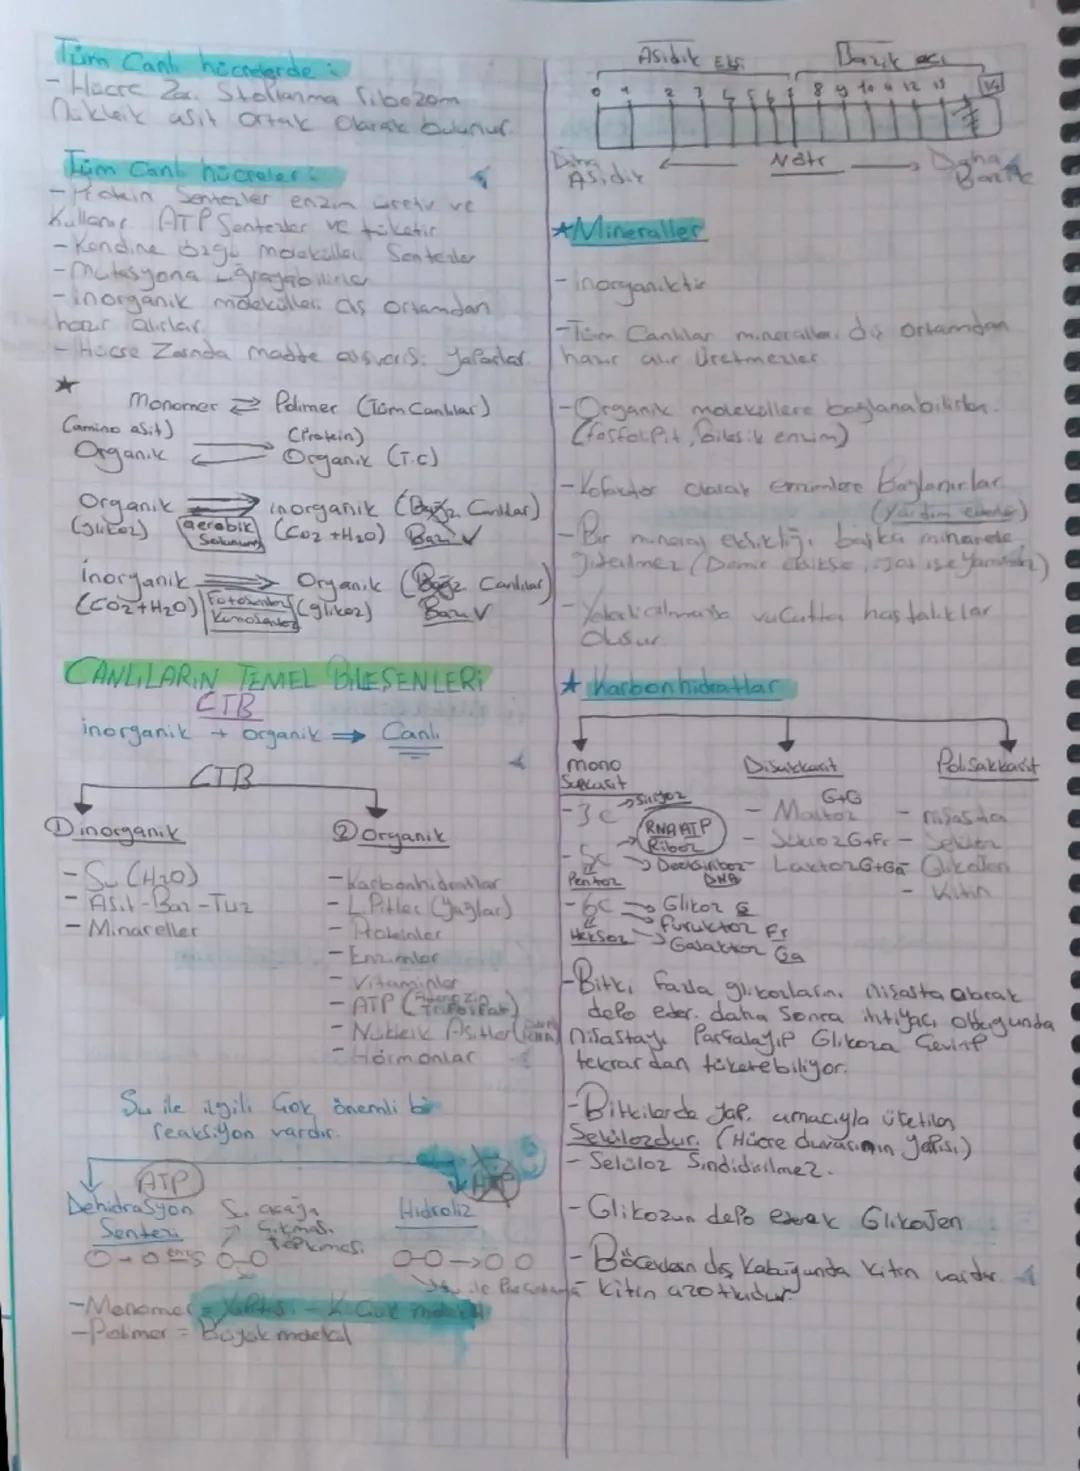 Tüm Canlı hücrelerde :
- Hücre Zarı Sitoplazma ribozom
Nükleik asit ortak olarak bulunur.
Tüm Canlı hücreler :
- Protein Sentezler enzim üretir ve
Kullanır. ATP Sentezler ve tüketir
- Kendine özgü moleküller Sentezler
- Mutasyona uğrayabilirler
- inorganik molekülleri dış ortamdan
hazır alırlar
- Hücre Zarında madde alışverişi yaparlar.
★
Monomer ⇄ Polimer (Tüm Canlılar)
(amino asit) (Protein)
Organik ⇄ Organik (T.C)
Organik ⇒ inorganik (Canlılar)
(glikoz) aerobik Solunum (CO2 + H2O) Bazı ✓
inorganik ⇒ Organik (Canlılar)
(CO2+H2O) Fotosentez Kemosentez (glikoz) Bazı ✓
CANLILARIN TEMEL BİLEŞENLERİ
CTB
inorganik + organik ⇒ Canlı
CTB
① inorganik
- Su (H2O)
- Asit-Baz-Tuz
- Minareller
② Organik
- Karbonhidratlar
- LPitler (Yağlar)
- Proteinler
- Enzimler
- Vitaminler
- ATP (Adenozin Trifosfat)
- Nükleik Asitler
- Hormonlar
Su ile ilgili Çok önemli bir
reaksiyon vardır.
ATP
Dehidrasyon
Sentezi
Su açığa
Çıkması
Tepkimesi
O + O enz O-O
ATP
Hidroliz
O-O → O O
Su ile Parçalama
- Monomer = Yapıtaşı - Küçük molekül
- Polimer = Büyük molekül
Asidik Ekşi Bazik acı
0 1 2 3 4 5 6 7 8 9 10 11 12 13 14
Daha Asidik ← Nötr → Daha Bazik
★ Mineraller
- inorganiktir
- Tüm Canlılar mineralleri dış Ortamdan
hazır alır Üretmezler
- Organik moleküllere bağlanabilirler.
(fosfolipit, bileşik enzim)
- Kofaktör olarak enzimlere Bağlanırlar
(Yardım eder)
- Bir mineral eksikliği başka minerale
giderilmez (Demir eksikse, işe yaramaz)
- Yeterli alınmazsa vücutta hastalıklar
Oluşur.
★ Karbonhidratlar
mono
Sakkarit
- 3C
- 5C → RNA ATP Riboz
Pentoz → Deoksiriboz DNA
- 6C → Glikoz G
Heksoz → Furuktoz Fr
→ Galaktoz Ga
Disakkarit
- Maltoz G+G
- Sükroz G+Fr
- Laktoz G+Ga
Polisakkarit
- nişasta
- Selüloz
- Glikojen
- Kitin
- Bitki fazla glikozlarını nişasta olarak
depo eder. daha Sonra ihtiyacı olduğunda
nişastayı Parçalayıp Glikoza Çevirip
tekrardan tüketebiliyor.
- Bitkilerde yapı amacıyla üretilen
Selülozdur. (Hücre duvarının yapısı)
- Selüloz Sindirilmez.
- Glikozun depo Glikojen
- Böceklerin dış Kabuğunda Kitin vardır.
Kitin azotludur.